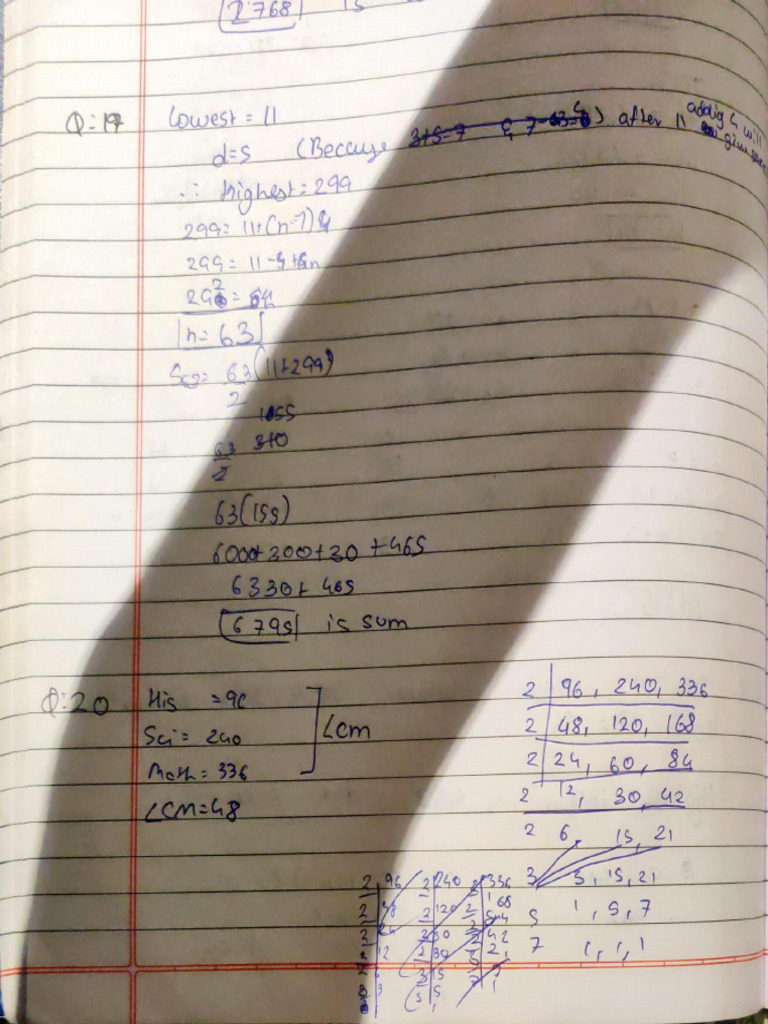 2768 is
Q:19 Lowest = 11
d=5 (Because 3+5=7 & 7 ) after 11 adding 4 will give
∴ Highest = 299
299 = 11+(n-1)4
299 = 11-4+4n
292 = 4n
n = 63
S63 = 63/2 (11+299)
155
63/2 310
63(155)
6000+300+30 +465
6330+465
6795 is sum
Q:20 His = 96
Sci = 240
Math = 336
Lcm
LCM=48
2 | 96, 240, 336
2 | 48, 120, 168
2 | 24, 60, 84
2 12, 30, 42
2 6, 15, 21
3 3, 15, 21
5 1, 5, 7
7 1, 1, 1
2 96 2 240 2 336
2 48 2 120 2 168
2 24 2 60 2 84
2 12 2 30 2 42
2 6 3 15 3 21
3 3 5 5 7 7
1 1